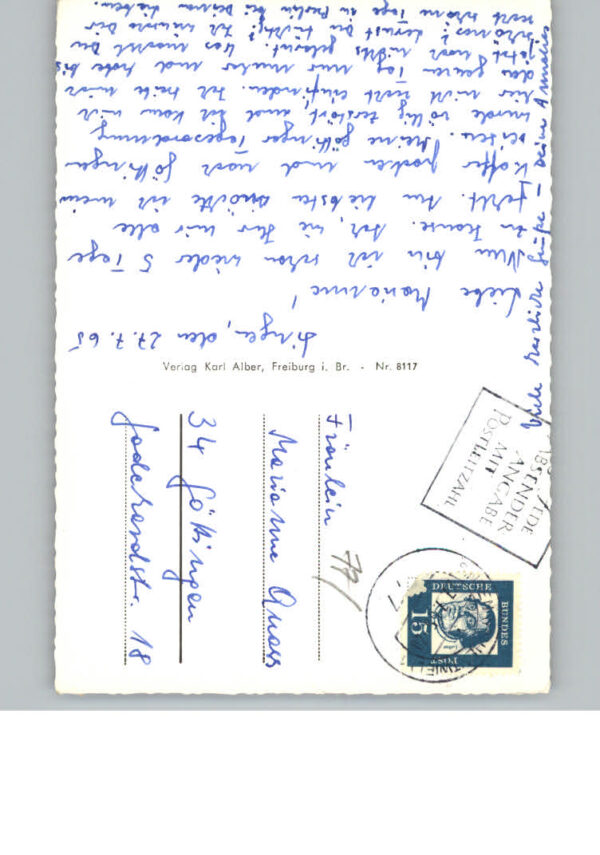 Singen, den 27.7.65
Liebe Marianne!
Nun bin ich schon wieder 5 Tage
zu Hause. Ach, wie Ihr mir alle
fehlt. Am liebsten möchte ich mein
Koffer packen und nach Göttingen
reisen. Meine göttinger Tagesordnung
wurde völlig zerstört, und ich kann mich
hier nicht recht einfinden. Ich treibe mich
den ganzen Tag nur umher und habe bis
jetzt noch nichts gelernt. Was machst Du
schönes? Lernst Du tüchtig? Ich wünsche Dir
recht schöne Tage in Berlin bei Deinen Lieben.
Viele herzliche Grüße – Deine Annelies
Verlag Karl Alber, Freiburg i. Br. - Nr. 8117
Fräulein
Marianne Quass
34 Göttingen
18
JEDE
ABSENDER
ANGABE
MIT
POSTLEITZAHL
DEUTSCHE
BUNDES
POST
15